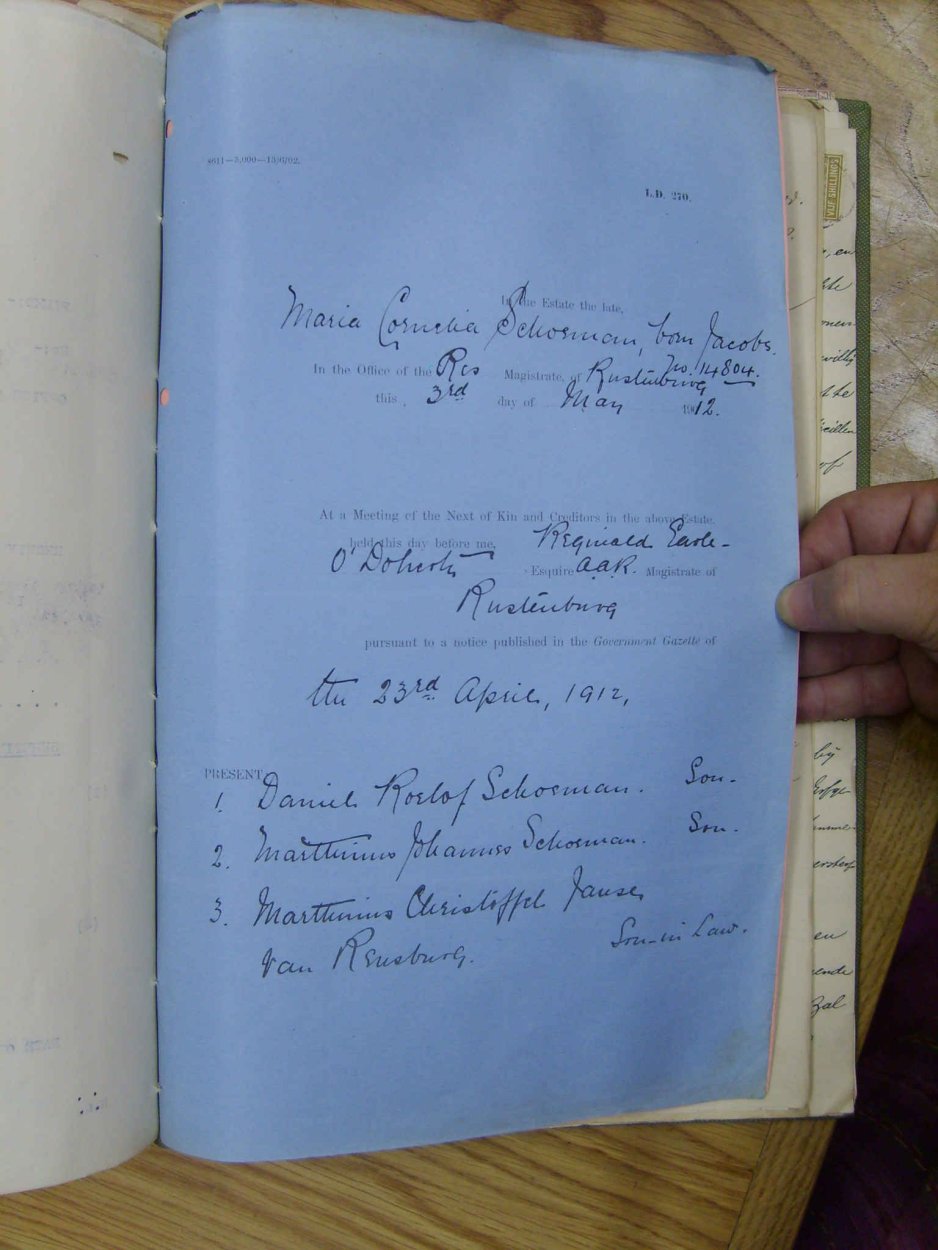 8611—5,000—13/6/02.
L.D. 270.
VIJF SHILLINGS
In the Estate the late,
Maria Cornelia Schoeman, born Jacobs.
No. 14804.
In the Office of the Res Magistrate, of Rustenburg
this 3rd day of May 1912.
At a Meeting of the Next of Kin and Creditors in the above Estate.
held this day before me, Reginald Earle-
O'Doherty Esquire A.A.R. Magistrate of
Rustenburg
pursuant to a notice published in the Government Gazette of
the 23rd April, 1912,
PRESENT
1. Daniel Roelof Schoeman. Son.
2. Marthinus Johannes Schoeman. Son.
3. Marthinus Christoffel Janse
van Rensburg. Son-in Law.